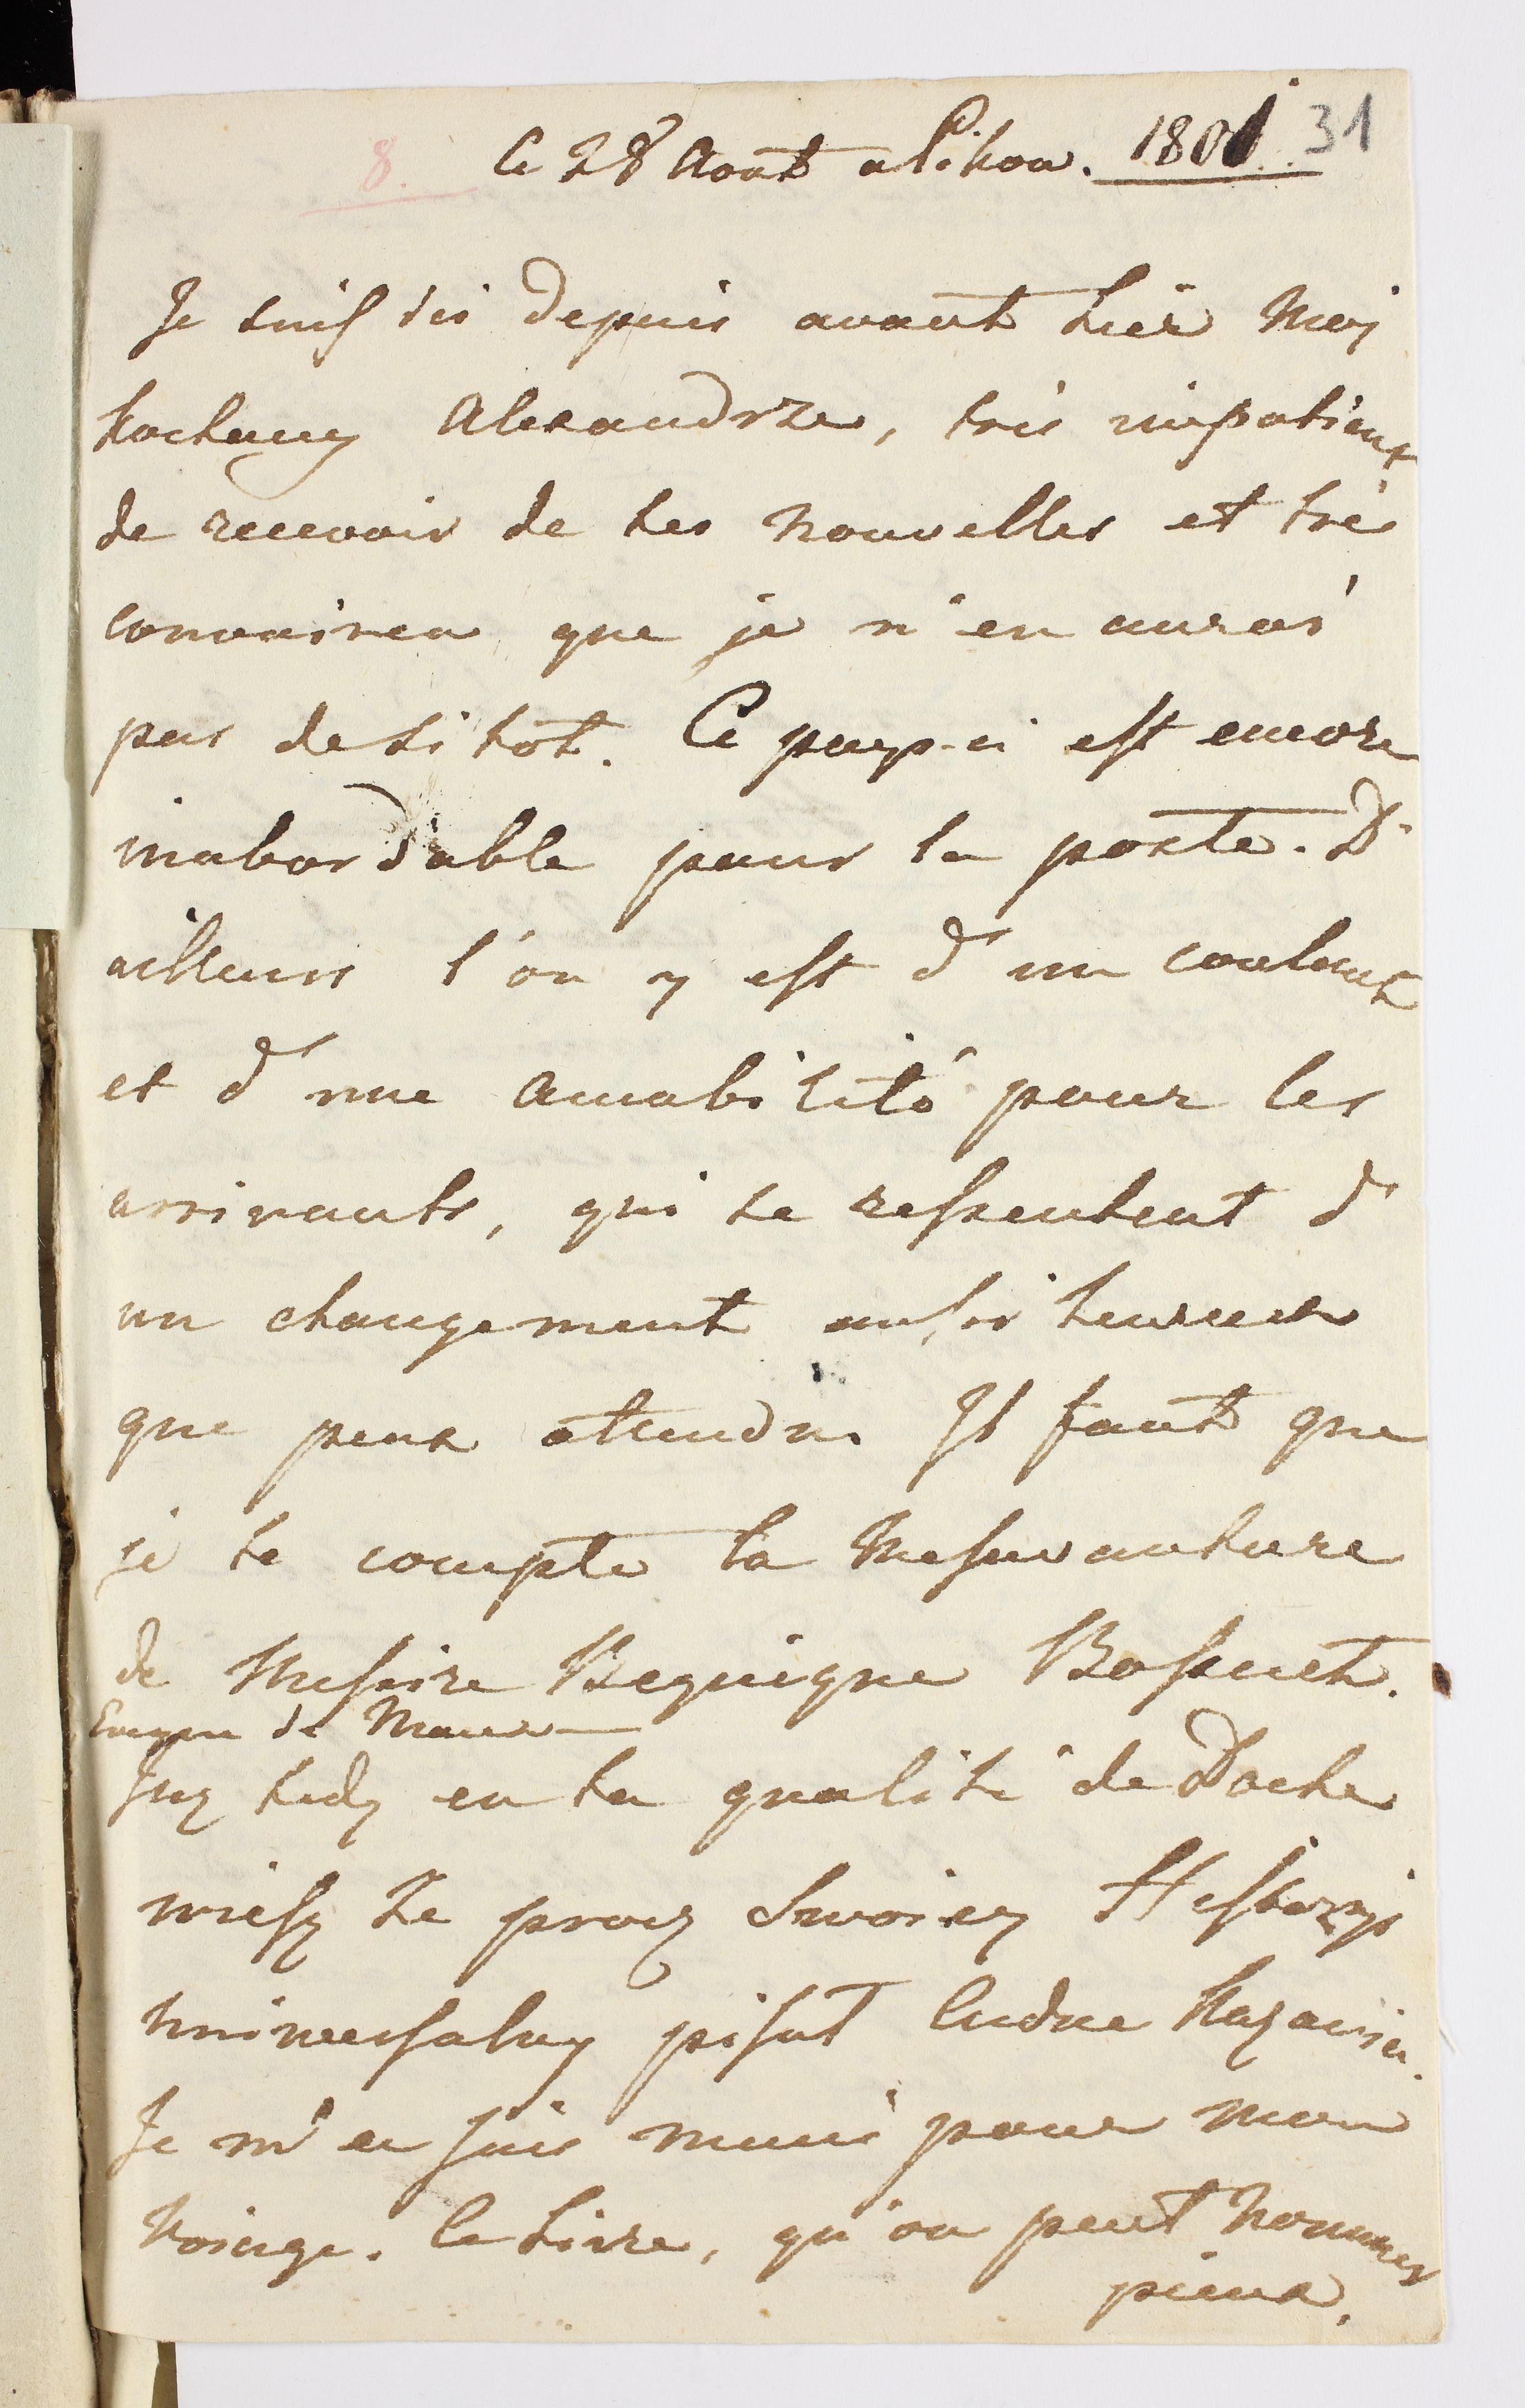 8. Ce 28 Aoüt a Pikow. 1801. 31
Je suis ici depuis avant hier Moy
kochany Alexandrze, trés impatient
de recevoir de tes nouvelles et trés
convaincu que je n'en aurai
pas desitôt. Ce pays-ci est encore
inabordable pour la poste. D'
ailleurs l'on y est d'un coulant
et d'une amabilité pour les
arrivants, qui se ressentent d'
un changement aussi heureux
que peux attendu. Il faut que
je te compte la Mesavanture
de Messire Bossuet.
de Maux
Juz tedy en ta qualité de Docte
wiesz ze przez Swoiey Historyi
uniwersalney pisał Cudne Kazania.
Je m'en suis muni pour mon
Voiage. Ce Livre, qu'on peut nommer
pieux,